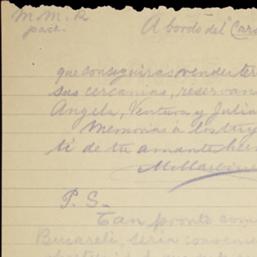 M. M. R
pacs.
A bordo del "Car
que conseguiras vender ter
sus cercanias, reservan
Angela, Ventura y Julia
Memorias á los tuy
ti de tu amante her
P. S.
Tan pronto com
Bucareli, seria convenie